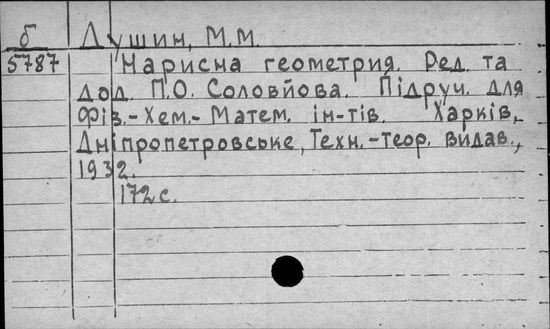 б Душин, М.М.
5787 Нарисна геометрия. Ред. та
дод. П.О. Соловйова. Підруч. для
Фіз.-Хем.-Матем. ін-тів. Харків,
Дніпропетровське, Техн.-теор. видав.,
1932.
172 с.